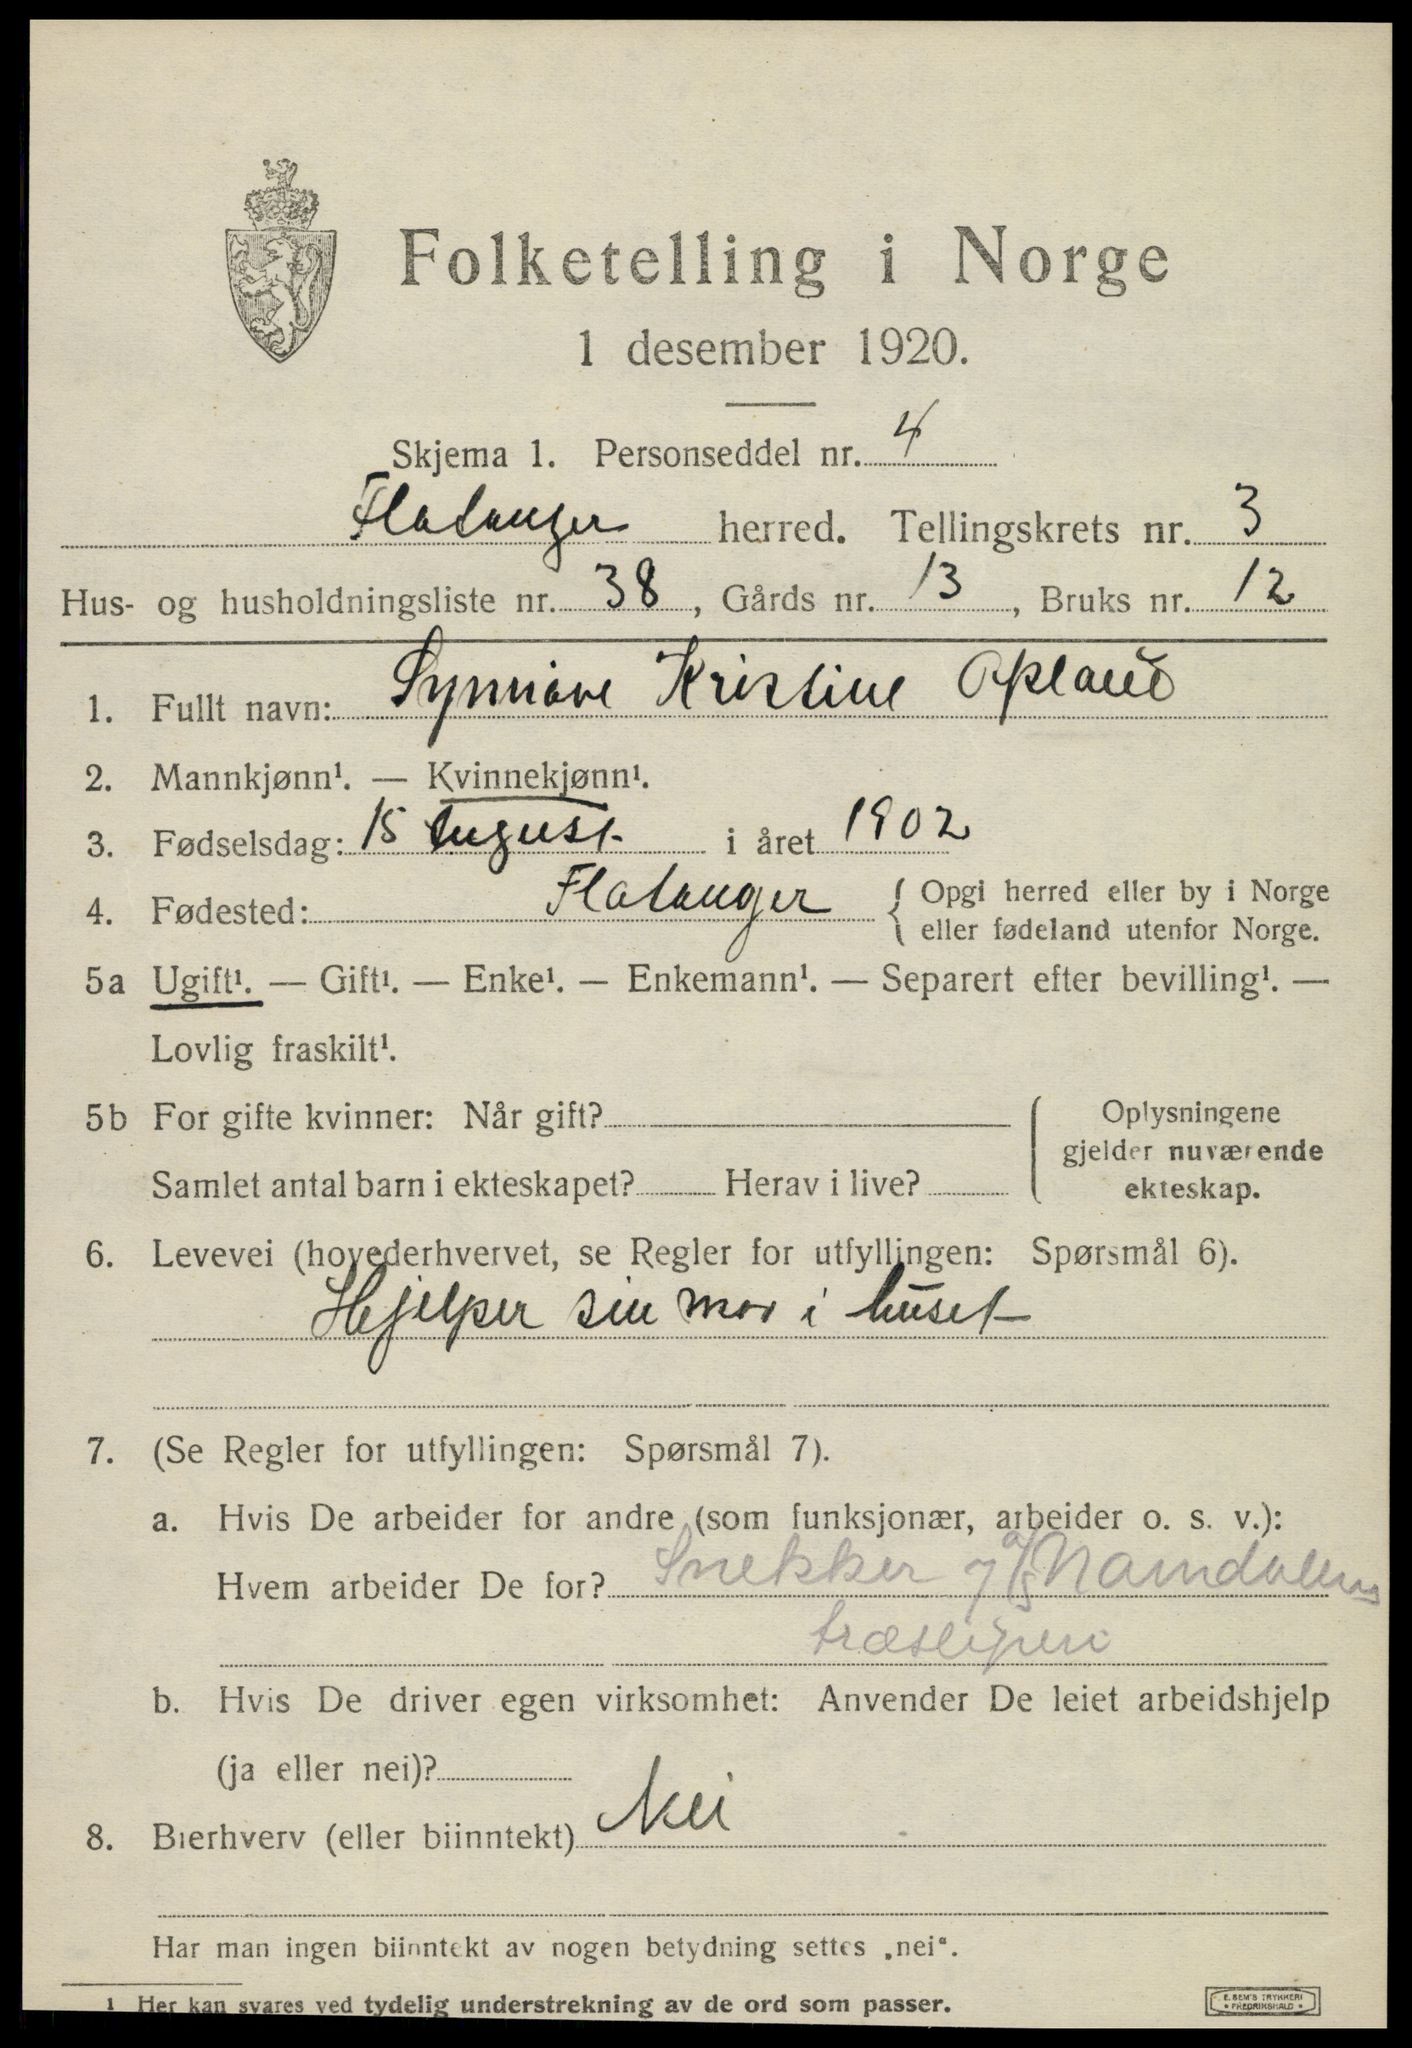 Folketelling i Norge
1 desember 1920.
Skjema 1. Personseddel nr. 4
Flatanger herred. Tellingskrets nr. 3
Hus- og husholdningsliste nr. 38, Gårds nr. 13, Bruks nr. 12
1. Fullt navn: Synnøve Kristine Opland
2. Mannkjønn¹. — Kvinnekjønn¹.
3. Fødselsdag: 15 August i året 1902
4. Fødested: Flatanger { Opgi herred eller by i Norge
eller fødeland utenfor Norge.
5a Ugift¹. — Gift¹. — Enke¹. — Enkemann¹. — Separert efter bevilling¹. —
Lovlig fraskilt¹.
5b For gifte kvinner: Når gift?
Samlet antal barn i ekteskapet? Herav i live?
Oplysningene
gjelder nuværende
ekteskap.
6. Levevei (hovederhvervet, se Regler for utfyllingen: Spørsmål 6).
Hjelper sin mor i huset
7. (Se Regler for utfyllingen: Spørsmål 7).
a. Hvis De arbeider for andre (som funksjonær, arbeider o. s. v.):
Hvem arbeider De for? Snekker a/s Namdalens
træsliperi
b. Hvis De driver egen virksomhet: Anvender De leiet arbeidshjelp
(ja eller nei)?
8. Bierhverv (eller biinntekt) Nei
Har man ingen biinntekt av nogen betydning settes „nei“.
1 Her kan svares ved tydelig understrekning av de ord som passer.
E. SEM'S TRYKKERI
FREDRIKSHALD